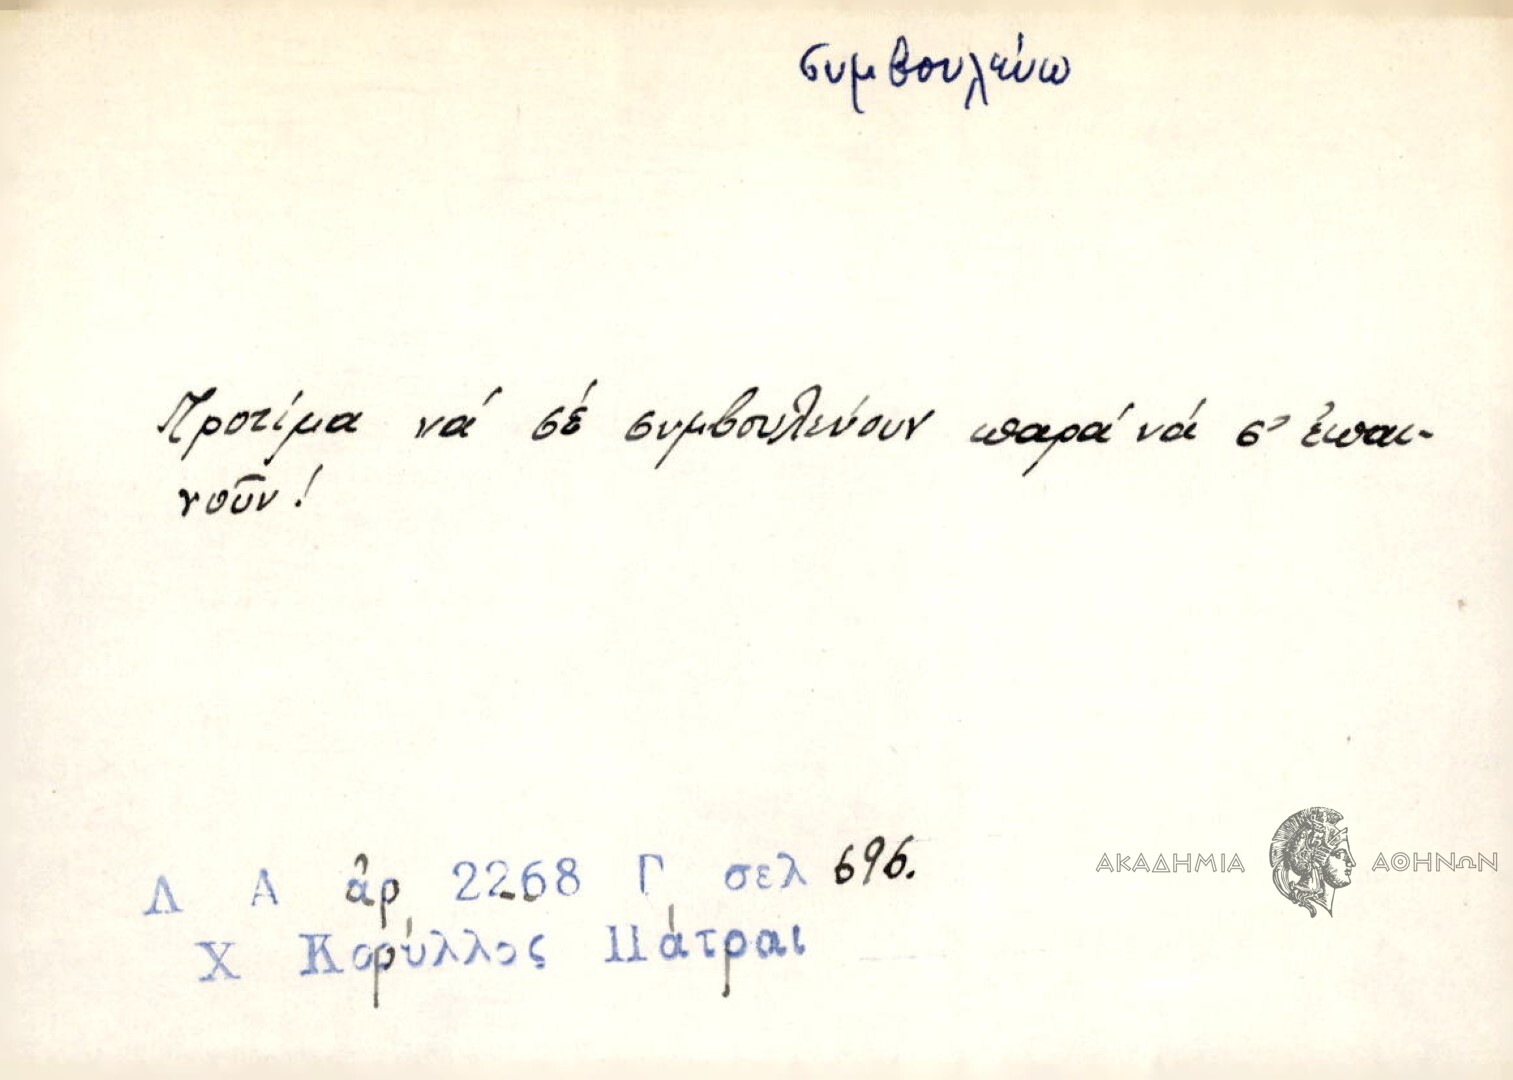 συμβουλεύω
Προτίμα νά σέ συμβουλεύουν παρά νά σ' ἐπαι-
νοῦν!
Λ Α ἀρ 2268 Γ σελ 696.
Χ Κορύλλος Πάτραι
ΑΚΑΔΗΜΙΑ ΑΘΗΝΩΝ